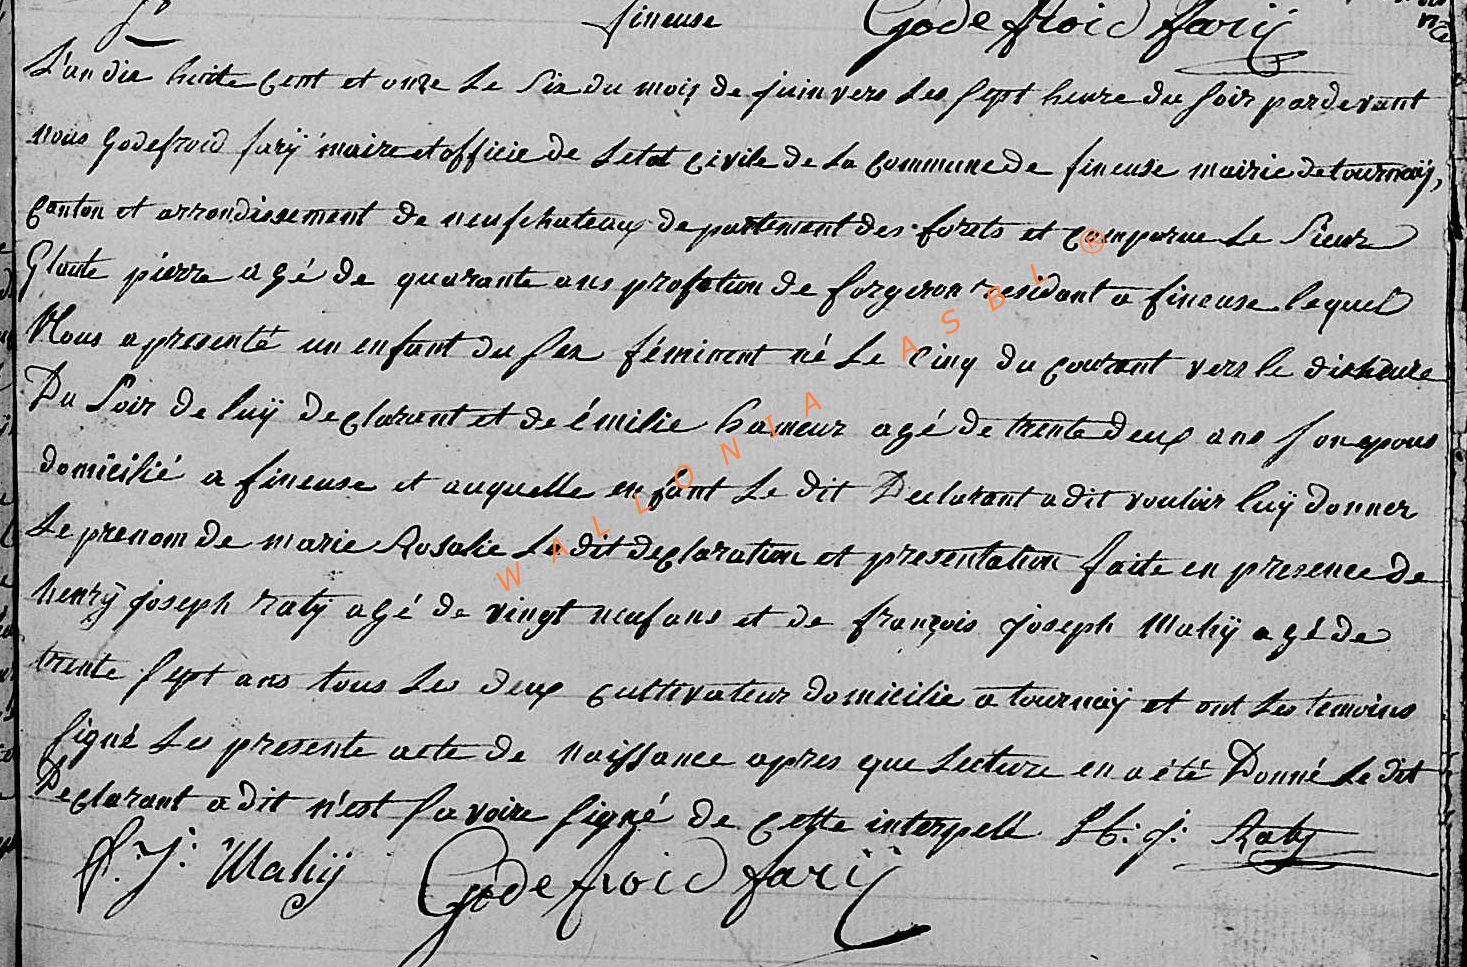 fineuse Godefroid farÿ
L'an die huite cent et onze Le Six du mois de juin vers Les Sept heure du Soir par devant
nous godefroid farÿ maire et officie de Letat civile de La Commune de fineuse mairie de tournaÿ,
Canton et arrondissement de neufchateaux departement des forets et comparue Le Sieur
pierre agé de quarante ans profetion de forgeron residant a fineuse lequel
Nous a presenté un enfant du Sex féminent né Le Cinq du courant vers le dix heure
Du Soir de luÿ declarant et de émilie hameur agé de trente deux ans Son epous
domicilié a fineuse et auquelle enfant Le dit Declarant a dit vouloir luÿ donner
Le prenom de marie Rosalie La dit declaration et presentation faite en presence de
henrÿ joseph ratÿ agé de vingt neuf ans et de françois joseph Mahÿ agé de
trente Sept ans tous Les deux cultivateur domicilie a tournaÿ et ont Les temoins
Signé Les presente acte de naissance apres que Lecture en a été Donné Le dit
Declarant a dit n'est Savoire Signé de cette interpelé H: j: Raty
f: j: Mahÿ Godefroid farÿ
WALLONIA ASBL ®